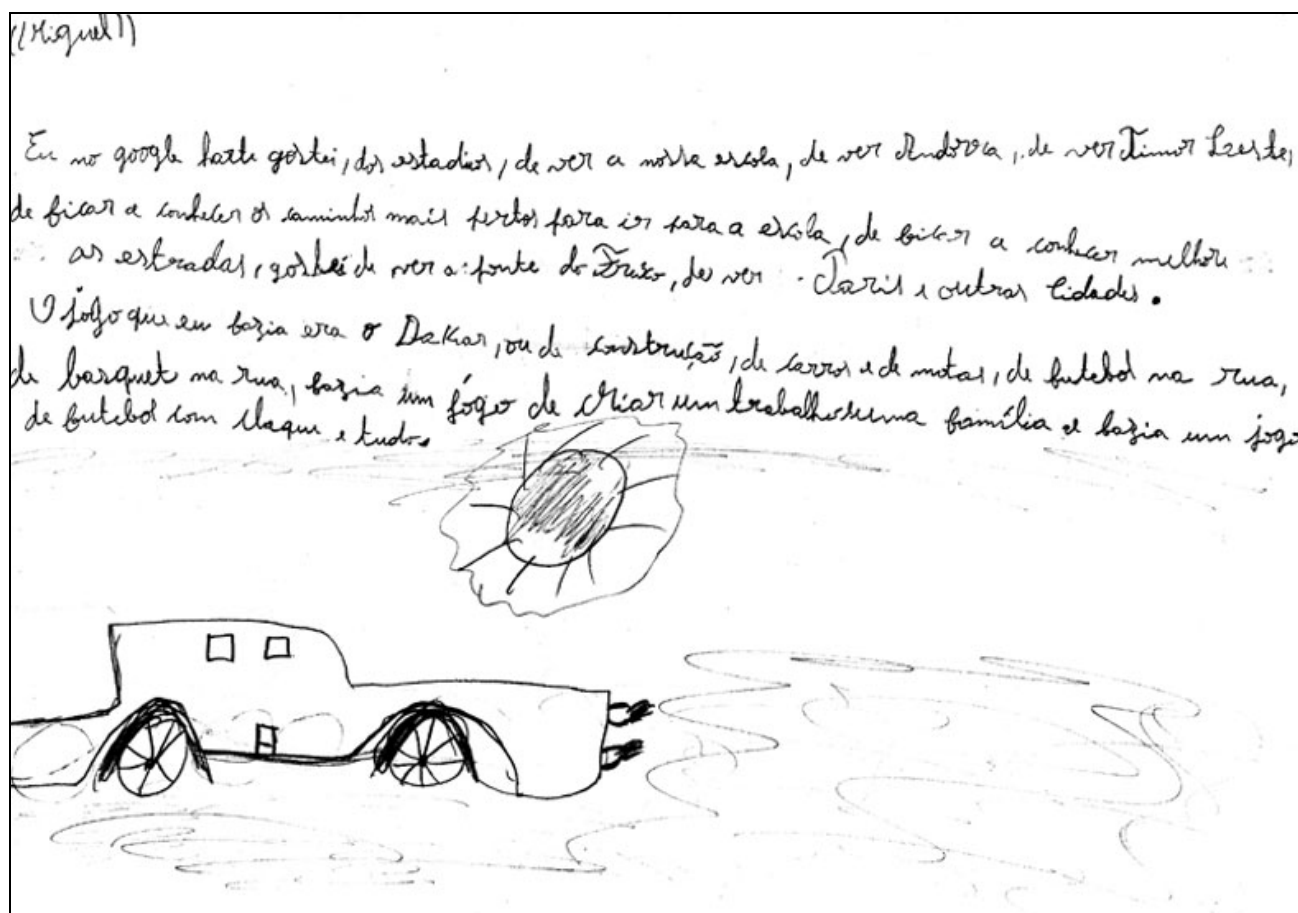 ((Miguel))
Eu no google harte gostei, dos estadios, de ver a nossa escola, de ver Andorra, de ver Timor Leste,
de ficar a conhecer os caminhos mais pertos para ir para a escola, de ficar a conhecer melhore
as estradas, gostei de ver a fonte do, de ver Paris e outras cidades.
O jogo que eu fazia era o Dakar, ou de construção, de carros e de motas, de futebol na rua,
de basquet na rua, fazia um jogo de criar um trabalho uma família e fazia um jogo
de futebol com claque e tudo.